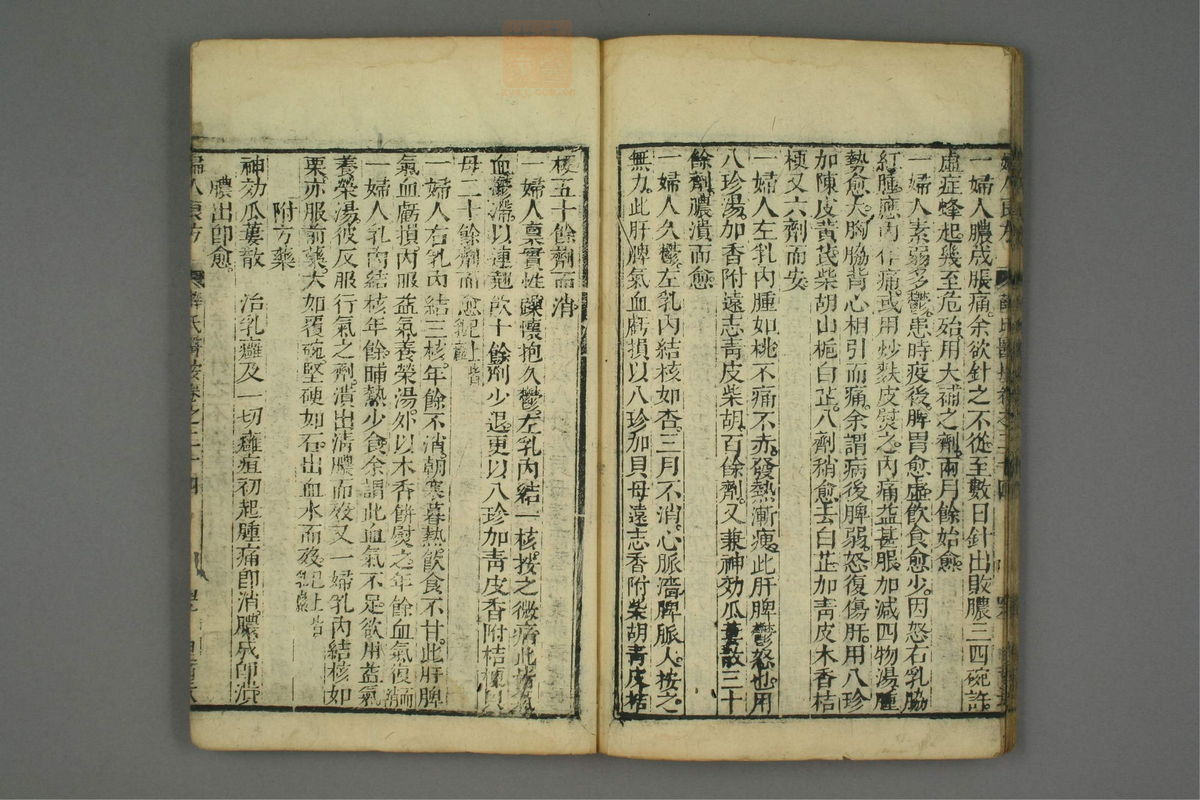 一婦人膿成脹痛余欲針之不從至數日針出敗膿三四碗許
虛症蜂起幾至危殆用大補之劑兩月餘始愈
一婦人素弱多鬱患時疫後脾胃愈虛飲食愈少因怒右乳脇
紅腫應內作痛或用炒麩皮熨之內痛益甚服加減四物湯腫
勢愈大胸脇背心相引而痛余謂病後脾弱怒復傷肝用八珍
加陳皮黃芪柴胡山梔白芷八劑稍愈去白芷加青皮木香桔
梗又六劑而安
一婦人左乳內腫如桃不痛不赤發熱漸瘦此肝脾鬱怒也用
八珍湯加香附遠志青皮柴胡百餘劑又兼神効瓜蔞散三十
餘劑膿潰而愈
一婦人久鬱左乳內結核如杏三月不消心脈濇脾脈大按之
無力此肝脾氣血虧損以八珍加貝母遠志香附柴胡青皮桔
梗五十餘劑而消
一婦人禀實性躁懷抱久鬱左乳內結一核按之微痛此氣
血鬱滯以連翹飲十餘劑少退更以八珍加青皮香附桔梗貝
母二十餘劑而愈
一婦人右乳內結三核年餘不消朝寒暮熱飲食不甘此肝脾
氣血虧損內服益氣養榮湯外以木香餅熨之年餘血氣復而消
一婦人乳內結核年餘晡熱少食余謂此血氣不足欲用益氣
養榮湯彼反服行氣之劑潰出清膿而歿又一婦乳內結核如
栗亦服前藥大如覆碗堅硬如石出血水而歿
附方藥
神効瓜蔞散 治乳癰及一切癰疽初起腫痛即消膿成即潰
膿出即愈
婦人良方 薛氏醫按卷之二十四